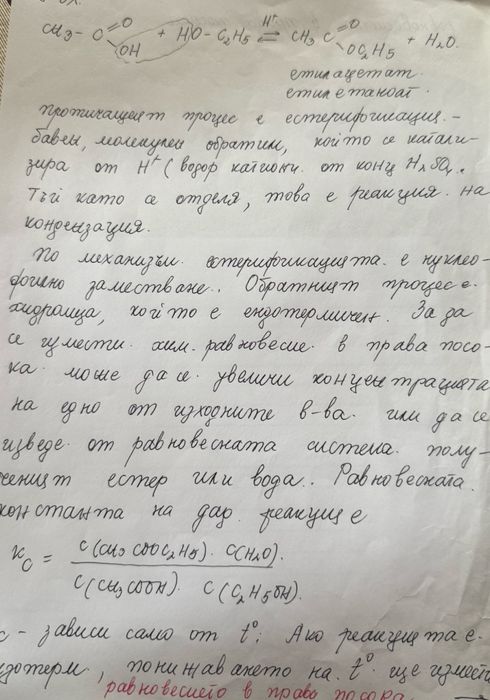 CH3 - C = O OH + HO - C2H5 ⇌ H+ CH3 C = O OC2H5 + H2O.
етилацетат.
етилетаноат.
протичащият процес е естерификация. -
бавен, молекулен обратим, който се катали-
зира от H+ (водор катиони. от конц H2SO4.
Тъй като се отделя, това е реакция на
кондензация.
По механизъм. естерификацията. е нуклео-
филно заместване.. Обратният процес е.
хидролиза, който е ендотермичен. За да
се измести. хим. равновесие в права посо-
ка може да се увеличи концентрацията
на едно от изходните в-ва. или да се
изведе. от равновесната система. полу-
чения естер или вода.. Равновесната.
константа на дар. реакция е
Kc = C(CH3COOC2H5). C(H2O).
C(CH3COOH). C(C2H5OH).
c - зависи само от t°. Ако реакцията е.
здотерм, понижаването на t° ще измести
равновесието в права посока